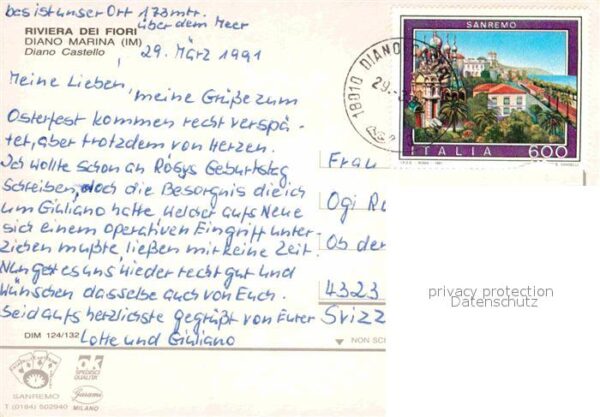 bes ist unser Ort 173 mtr.
über dem Meer
RIVIERA DEI FIORI
DIANO MARINA (IM)
Diano Castello
29. März 1991
Meine Lieben,
meine Grüße zum
Osterfest kommen recht verspä-
tet, aber trotzdem von Herzen.
Ich wollte schon an Rösys Geburtstag
schreiben, doch die Besorgnis die ich
um Giuliano hatte, welcher aufs Neue
sich einem operativen Eingriff unter-
ziehen mußte, ließen mir keine Zeit.
Nun get es uns wieder recht gut und
wünschen dasselbe auch von Euch.
Seid aufs herzlichste gegrüßt von Eurer
Lotte und Giuliano
DIM 124/132
SANREMO
T. (0184) 502940
SPEDISCI
QUALITA'
Garami
MILANO
18010 DIANO
29.-3
SANREMO
ITALIA 600
Frau
Ogi Ru
Ob der
4323
Svizz
NON SC
privacy protection
Datenschutz